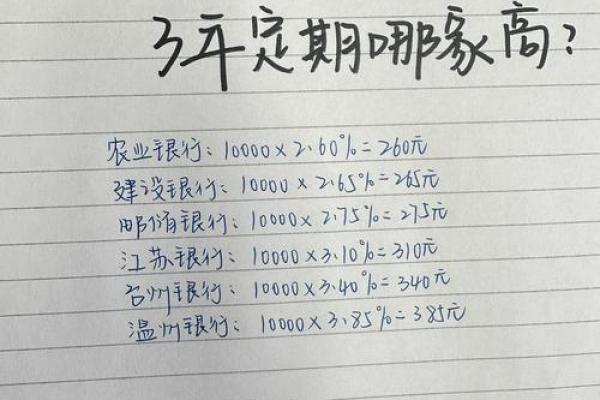 3年定期哪家高?
农业银行: 10000×2.60%=260元
建设银行: 10000×2.65%=265元
邮储银行: 10000×2.75%=275元
江苏银行: 10000×3.10%=310元
台州银行: 10000×3.40%=340元
温州银行: 10000×3.85%=385元